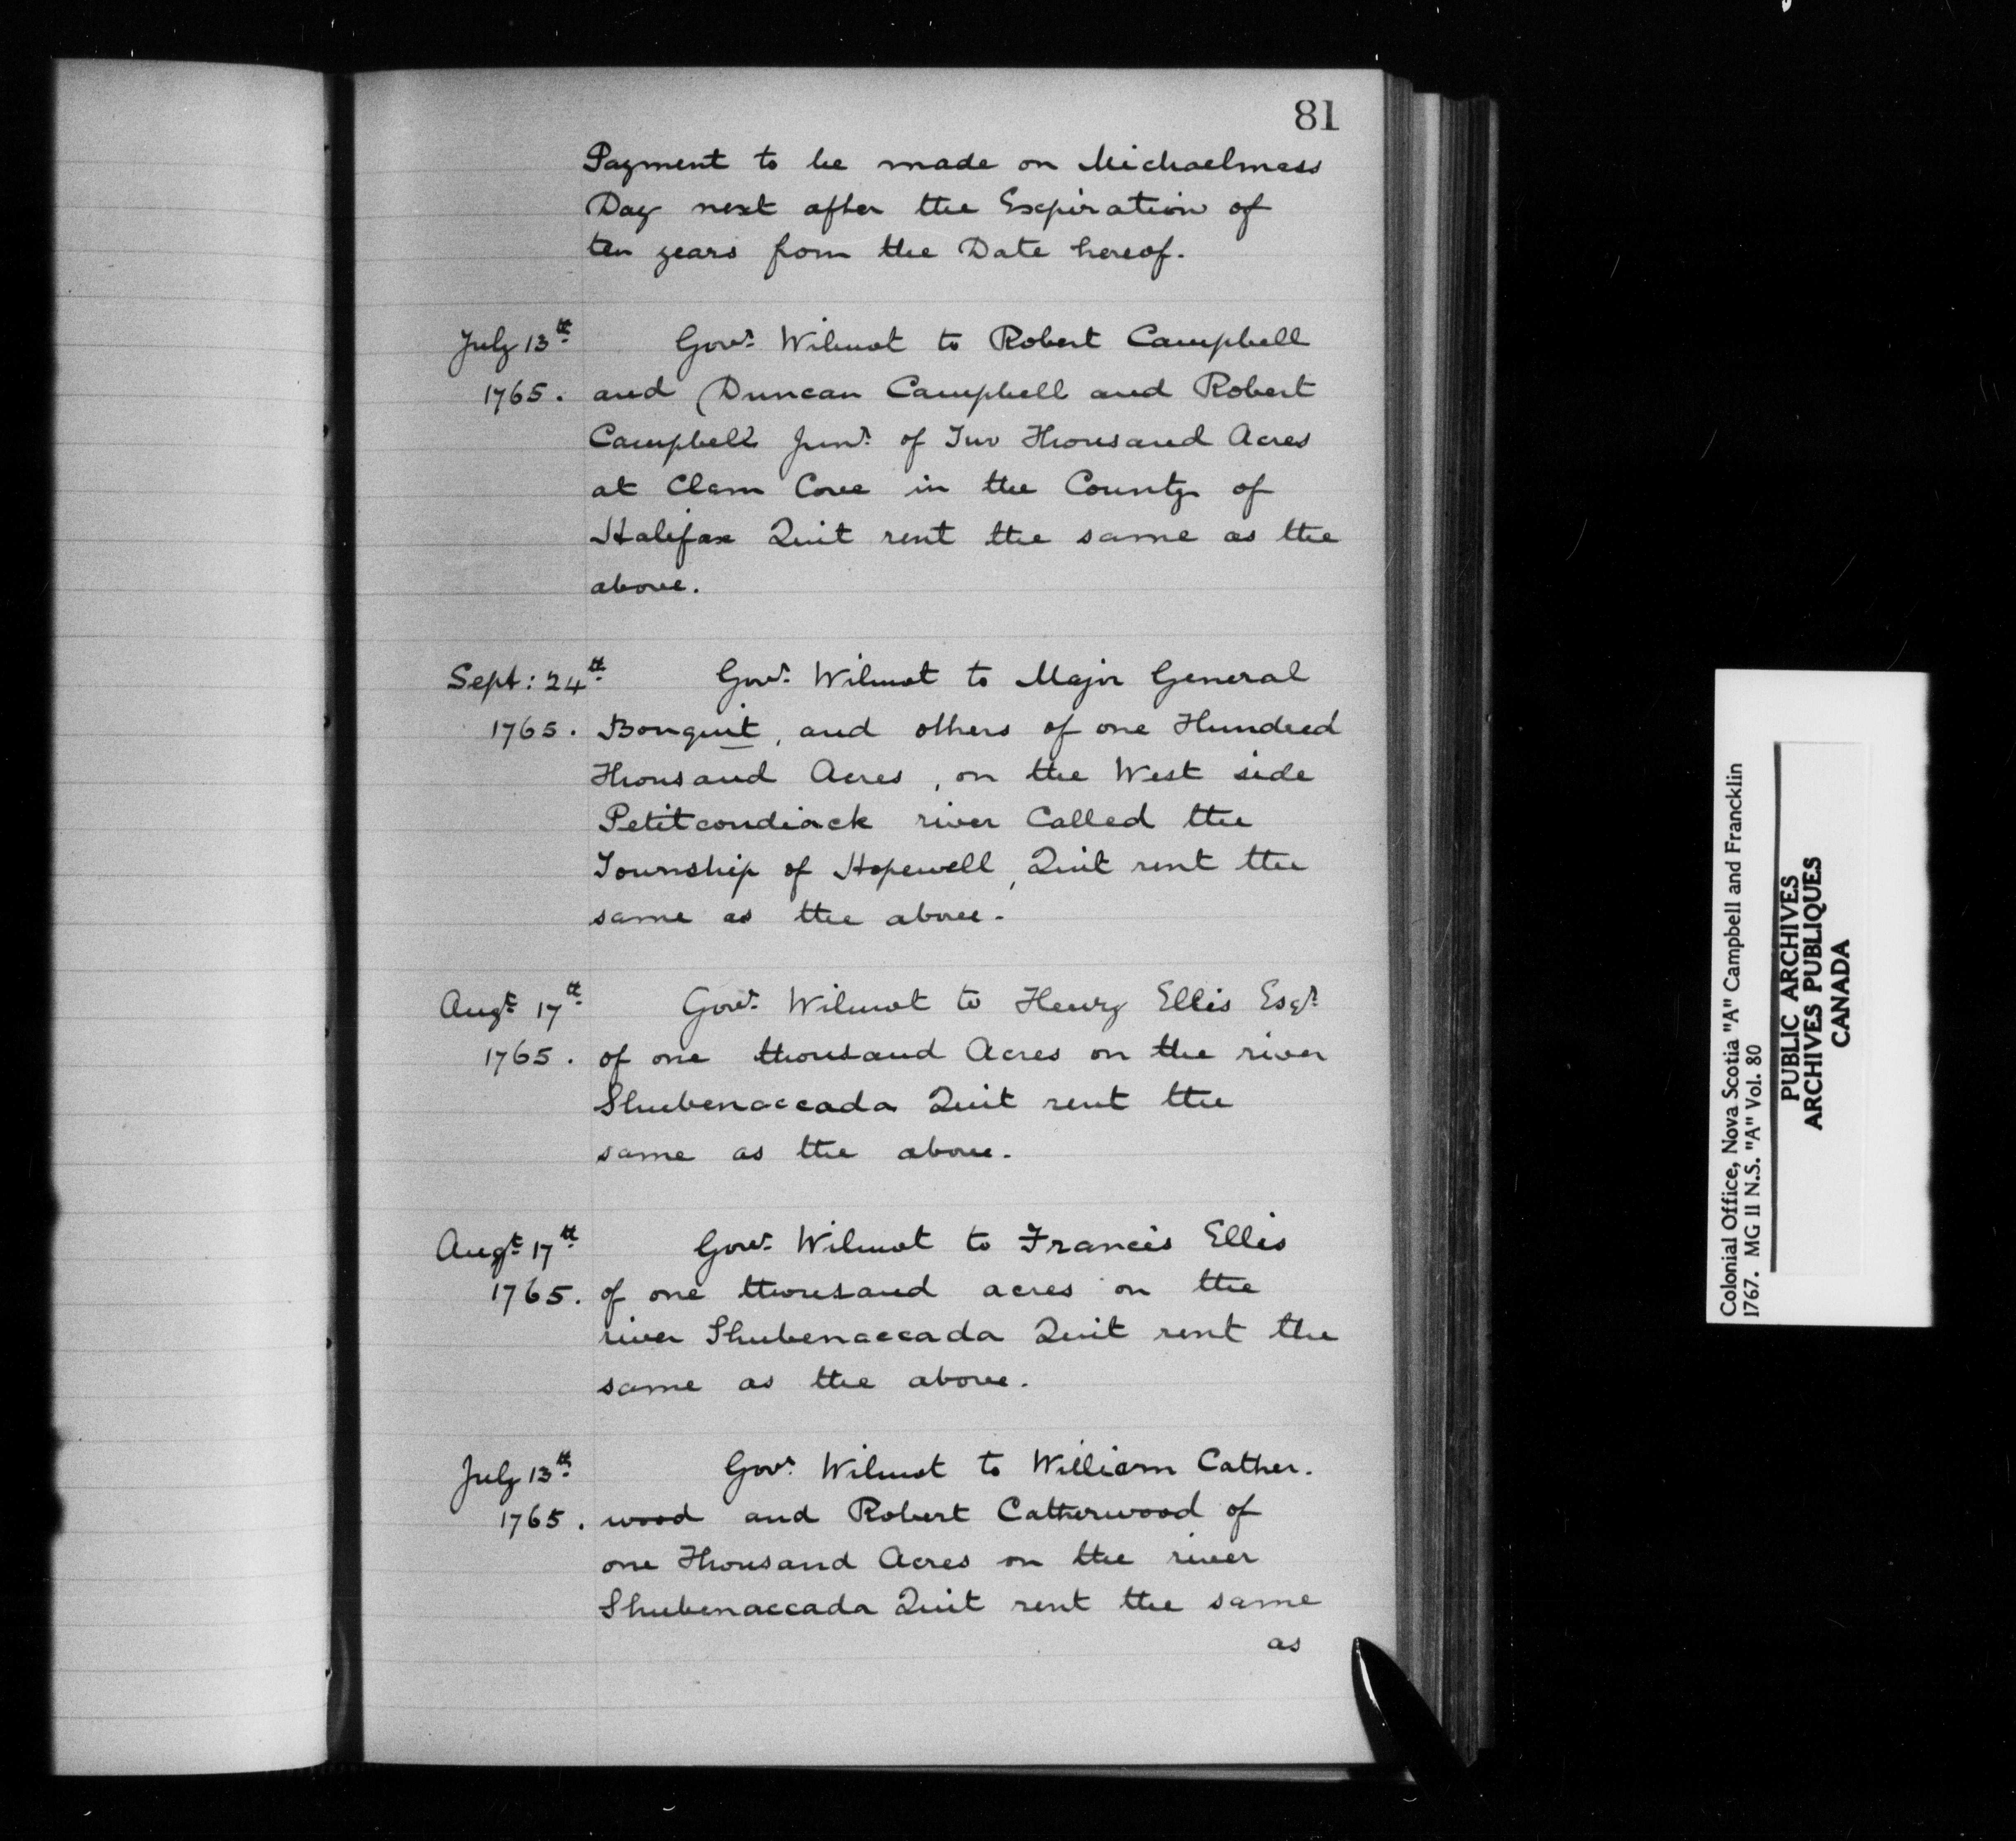 81
Payment to be made on Michaelmass
Day next after the Expiration of
ten years from the Date hereof.
July 13th Govr. Wilmot to Robert Campbell
1765. and Duncan Campbell and Robert
Campbell Junr. of Two Thousand Acres
at Clam Cove in the County of
Halifax Quit rent the same as the
above.
Sept: 24th Govr. Wilmot to Major General
1765. Bouquit, and others of one Hundred
Thousand Acres, on the West side
Petitcondiack river Called the
Township of Hopewell, Quit rent the
same as the above.
Augt. 17th Govr. Wilmot to Henry Ellis Esqr.
1765. of one thousand Acres on the river
Shubenaccada Quit rent the
same as the above.
Augt. 17th Govr. Wilmot to Francis Ellis
1765. of one thousand acres on the
river Shubenaccada Quit rent the
same as the above.
July 13th Govr. Wilmot to William Cather-
1765. wood and Robert Catherwood of
one Thousand Acres on the river
Shubenaccada Quit rent the same
as
Colonial Office, Nova Scotia "A" Campbell and Francklin
1767. MG 11 N.S. "A" Vol. 80
PUBLIC ARCHIVES
ARCHIVES PUBLIQUES
CANADA